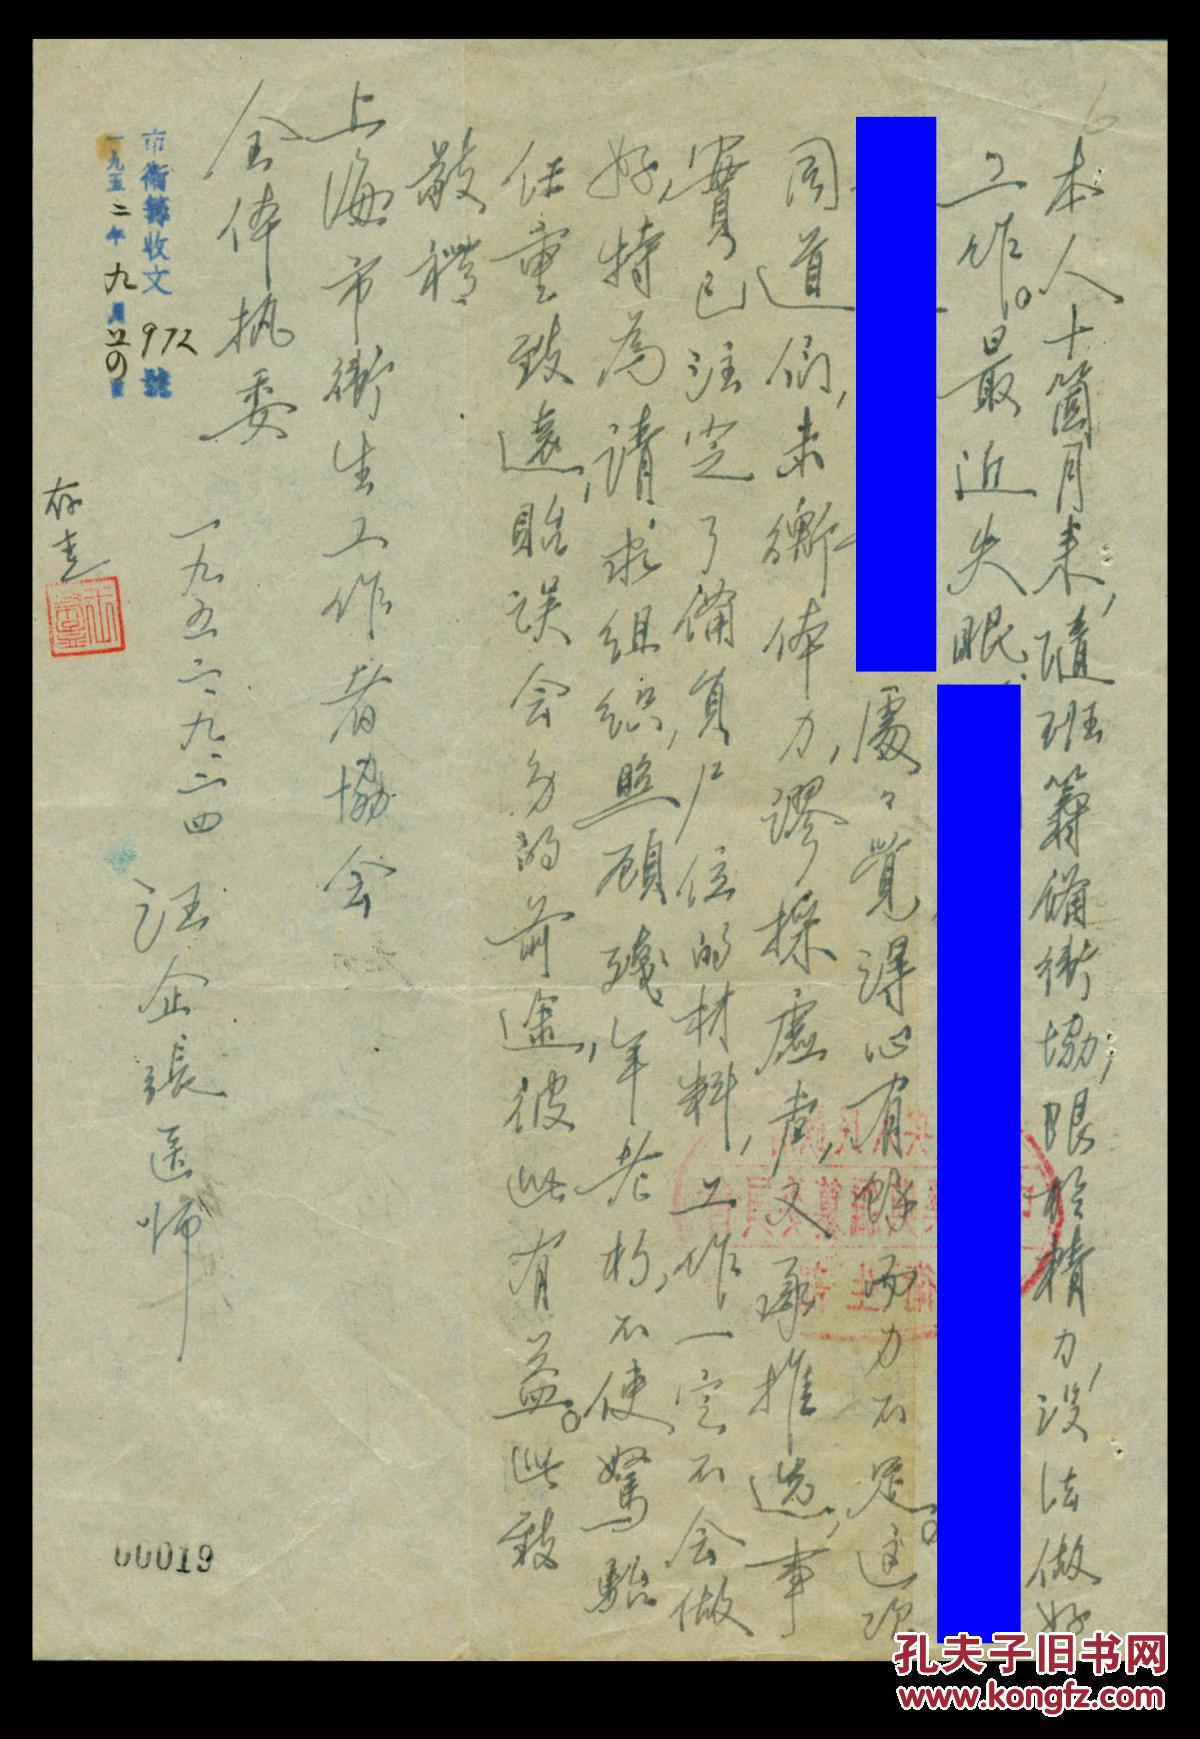 本人十箇月来，随班籌備衛協，限於精力，没法做好
工作。最近失眠
處々覺得心有餘而力不足。這次
同道们，未衡体力，謬採虚声，又承推选，事
實已注定了備員尸位的材料，工作一定不会做
好，特為請求组织，照顾残年老朽，不使駑駘
任重致遠，貽误会务的前途，彼此有益。此致
敬禮
上海市衛生工作者協会
全体执委
一九五二.九.二四
汪企張医师
市衛籌收文972號
一九五二年九月廿四日
存查
00019
孔夫子旧书网
www.kongfz.com